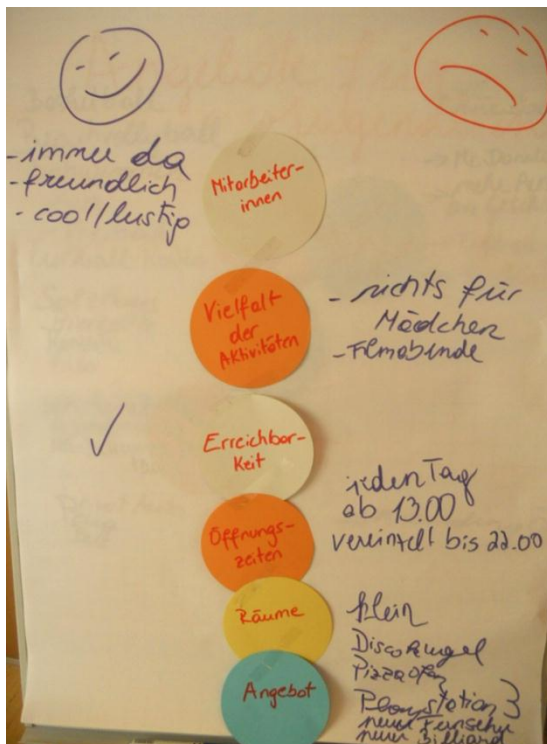 -immer da
-freundlich
-cool/lustig
Mitarbeiter-
innen
Vielfalt
der
Aktivitäten
- nichts für
Mädchen
-Filmabende
Erreichbar-
keit
Öffnungs-
zeiten
jeden Tag
ab 13.00
vereinzelt bis 22.00
Räume
klein
Discokugel
Pizzaofen
Angebot
Playstation 3
neuer Fernseher
neuer Billiard